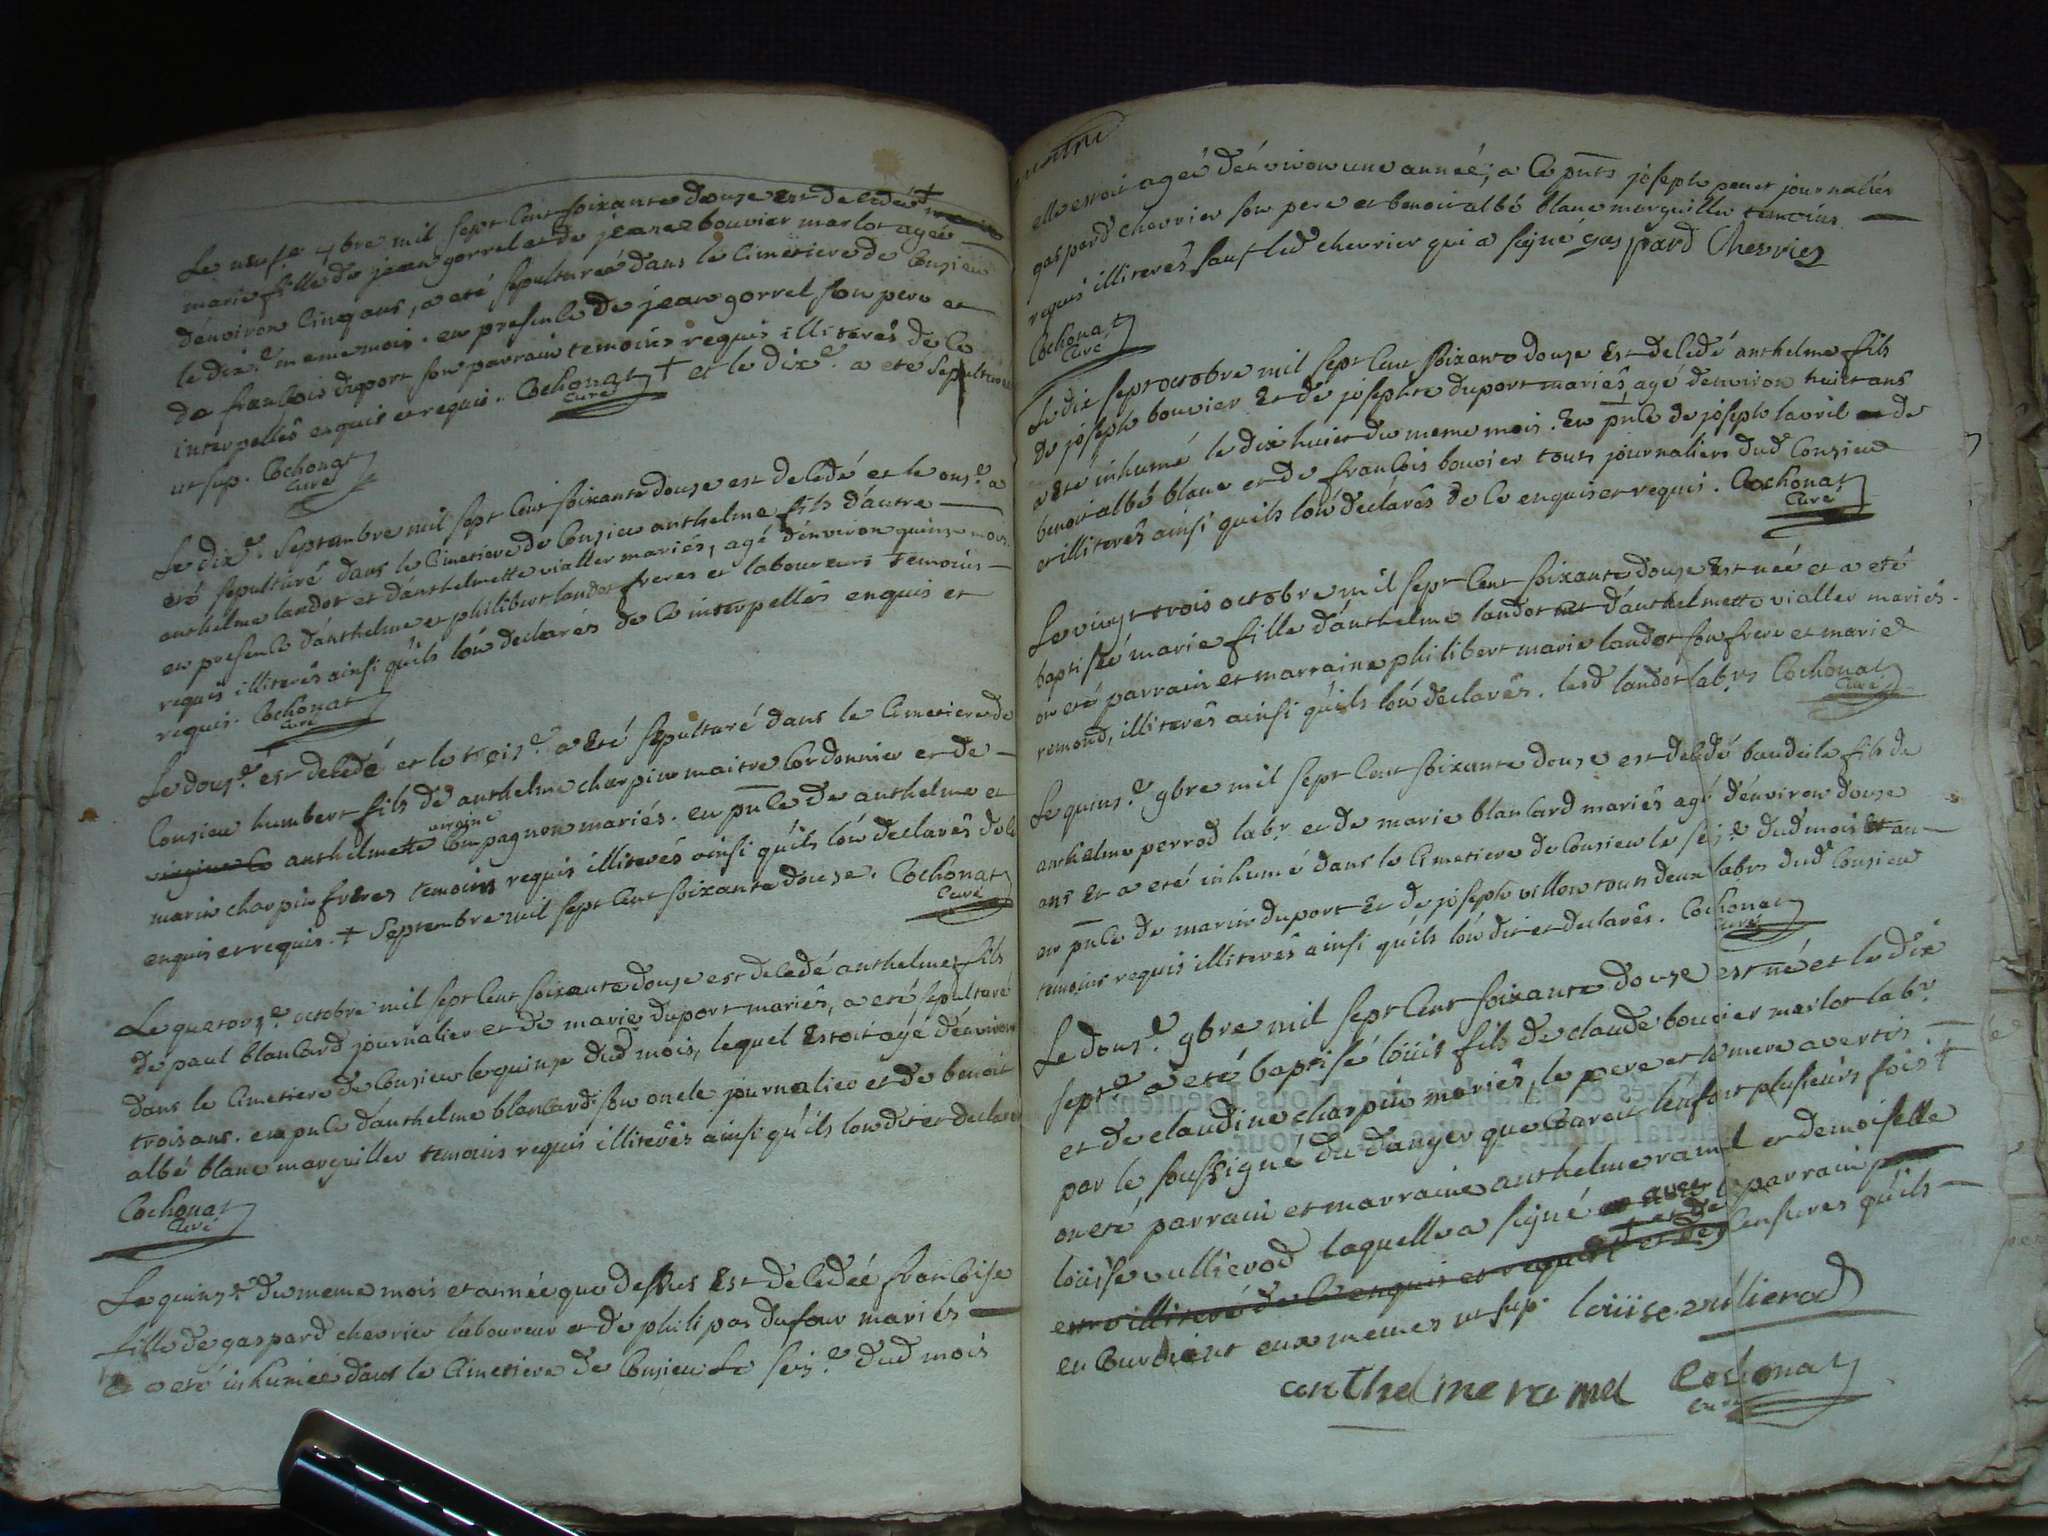 Le neufe 7bre mil sept cent soixante douze est decedé †
marie fille de jean gorrel et de jeane bouvier marlot agée
d'environ cinq ans, a eté sepulturée dans le cimetiere de Consieu
le dix.e meme mois. en presence de jean gorrel son pere et
de françois duport son parrain temoins requis illiterés de ce
interpellés enquis et requis. Cochonat curé † et le dix.e a eté sepulturée
ut sup. Cochonat
curé
Le dix.e septembre mil sept cent soixante douze est decedé et le onz.e a
eté sepulturé dans le cimetiere de Consieu anthelme fils d'autre
anthelme landot et d'anthelmette vialler mariés, agé d'environ quinze mois
en presence d'anthelme et philibert landot freres et laboureurs temoins
requis illiterés ainsi qu'ils l'on declarés de ce interpellés enquis et
requis. Cochonat
curé
Le douz.e est decedé et le treiz.e a eté sepulturé dans le cimetiere de
Consieu humbert fils de anthelme charpin maitre cordonnier et de
virgine co anthelmette virgine compagnon mariés. en pnce de anthelme et
marin charpin freres temoins requis illiterés ainsi qu'ils l'on declarés de ce
enquis et requis. † septembre mil sept cent soixante douze. Cochonat
curé
Le quatorz.e octobre mil sept cent soixante douze est decedé anthelme fils
de paul blancard journalier et de marie duport mariés, a eté sepulturé
dans le cimetiere de Consieu le quinze dud mois, lequel estoit agé d'environ
trois ans. en pnce d'anthelme blancard son oncle journalier et de benoit
albé blanc marguiller temoins requis illiterés ainsi qu'ils l'on dit et declaré
Cochonat
curé
Le quinz.e du meme mois et année que dessus est decedée françoise
fille de gaspard chevrier laboureur et de philipas dufour mariés
a eté inhumée dans le cimetiere de Consieu le seiz.e dud mois
elle estoit agée d'environ une année, a ce pnts joseph penet journalier
gasperd chevrier son pere et benoit albé blanc marguiller temoins
requis illiterés sauf led chevrier qui a signé gaspard Chevrier
Cochonat
curé
Le dix sept octobre mil sept cent soixante douze est decedé anthelme fils
de joseph bouvier et de josephte duport mariés, agé d'environ huit ans
a eté inhumé le dix huit du meme mois. en pnce de joseph lavril et de
benoit albé blanc et de françois bouvier touts journaliers dud Consieu
et illiterés ainsi qu'ils l'on declarés de ce enquis et requis. Cochonat
curé
Le vingt trois octobre mil sept cent soixante douze est née et a eté
baptisée marie fille d'anthelme landot et d'anthelmette vialler mariés.
on eté parrain et marraine philibert marie landot son frere et marie
remond, illiterés ainsi qu'ils l'on declarés. lesd landot labrs Cochonat
curé
Le quinz.e 9bre mil sept cent soixante douze est decedé baudile fils de
anthelme perrod labr. et de marie blancard mariés agé d'environ douze
ans et a eté inhumé dans le cimetiere de Consieu le seiz.e dud mois et an
en pnce de marin duport et de joseph villon touts deux labrs dud Consieu
temoins requis illiterés ainsi qu'ils l'on dit et declarés. Cochonat
curé
Le douz.e 9bre mil sept cent soixante douze est né et le dix
sept.e a eté baptisé loüis fils de claude bouvier marlot labr.
et de claudine charpin mariés, le pere et la mere avertis
par le soussigné du danger que couroit l'enfant plusieurs fois †
on eté parrain et marraine anthelme ramel et demoiselle
loüise vullierod laquelle a signé avec le parrain
et illiteré de ce enquis et requis † et des censures qu'ils
encouroient eux memes ut sup. loüise vulierod
anthelme ramel Cochonat
curé